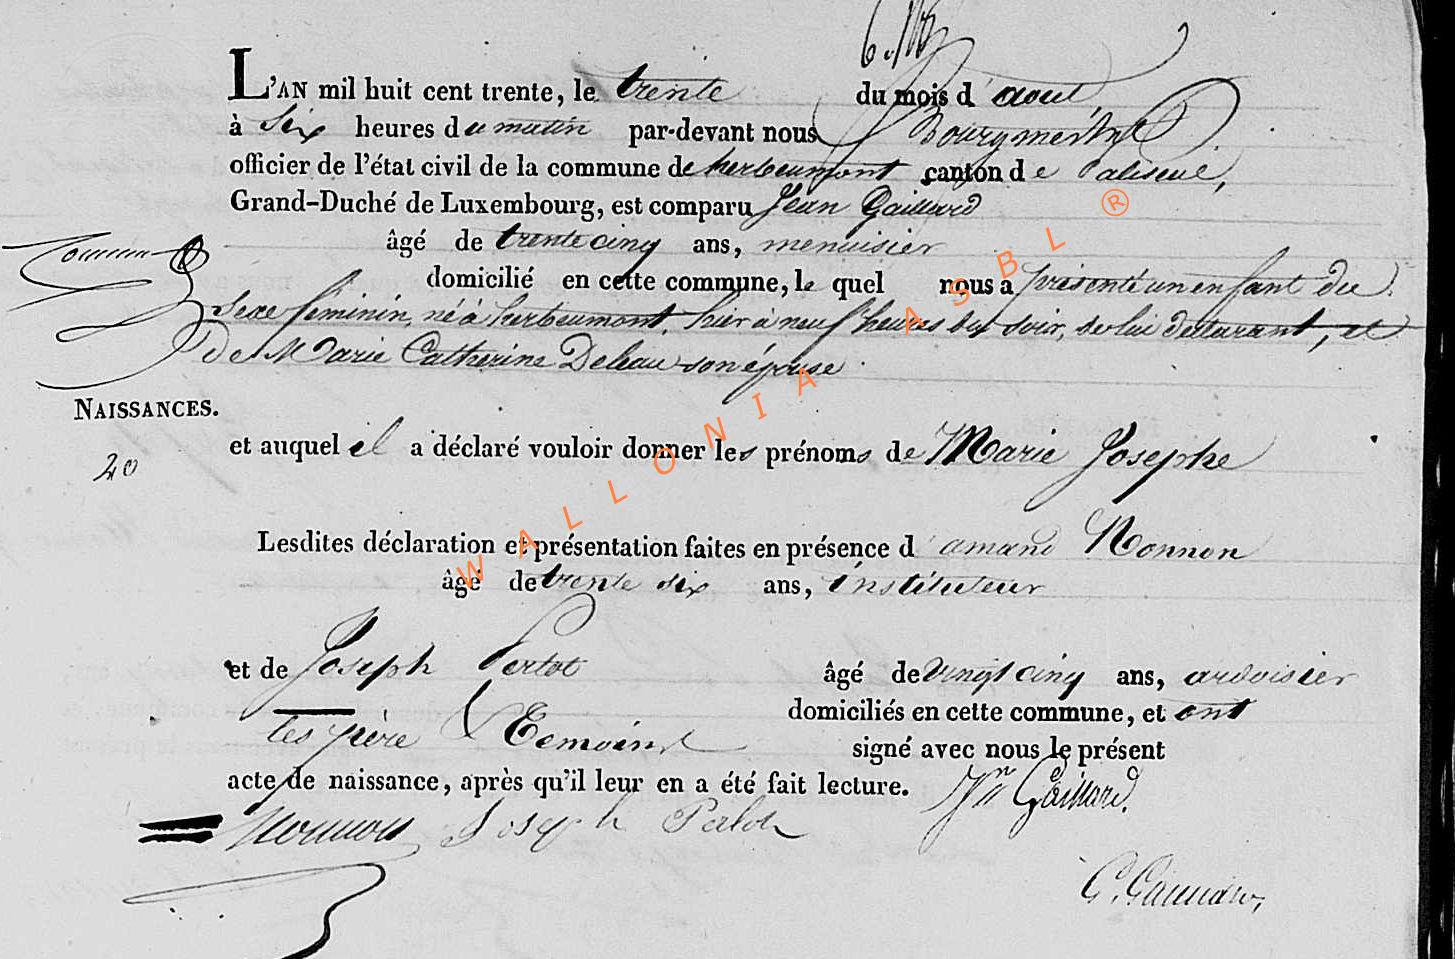 L'AN mil huit cent trente, le trente du mois d'aout,
à Six heures du matin par-devant nous Bourgmestre
officier de l'état civil de la commune de herbeumont canton de Paliseul,
Grand-Duché de Luxembourg, est comparu Jean Gaillard
âgé de trente cinq ans, menuisier
domicilié en cette commune, le quel nous a présenté un enfant du
Sexe féminin, né à herbeumont, hier à neuf heures du soir, de lui déclarant, et
de Marie Catherine Deleau son épouse
NAISSANCES.
et auquel il a déclaré vouloir donner les prénoms de Marie Josephe
20
Lesdites déclaration et présentation faites en présence d'amand Nonnon
âgé de trente six ans, instituteur
et de Joseph Perlot âgé de vingt cinq ans, ardoisier
domiciliés en cette commune, et ont
les père & Temoins signé avec nous le présent
acte de naissance, après qu'il leur en a été fait lecture. Jn Gaillard.
Nonnon Joseph Perlot
WALLONIA ASBL ®